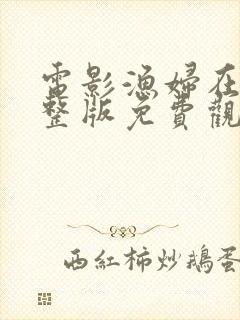 電影漁婦在
整版免費觀
西紅柿炒鵝蛋